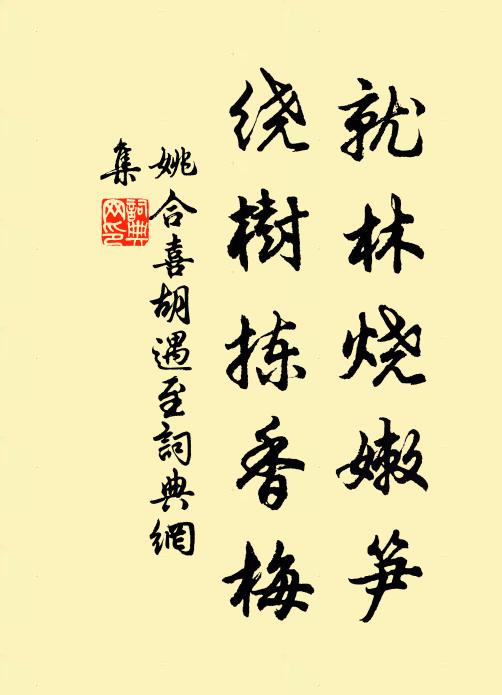 就林烧嫩笋
绕樹拣香梅
姚合喜胡遇至詞典網
集
詞典網印